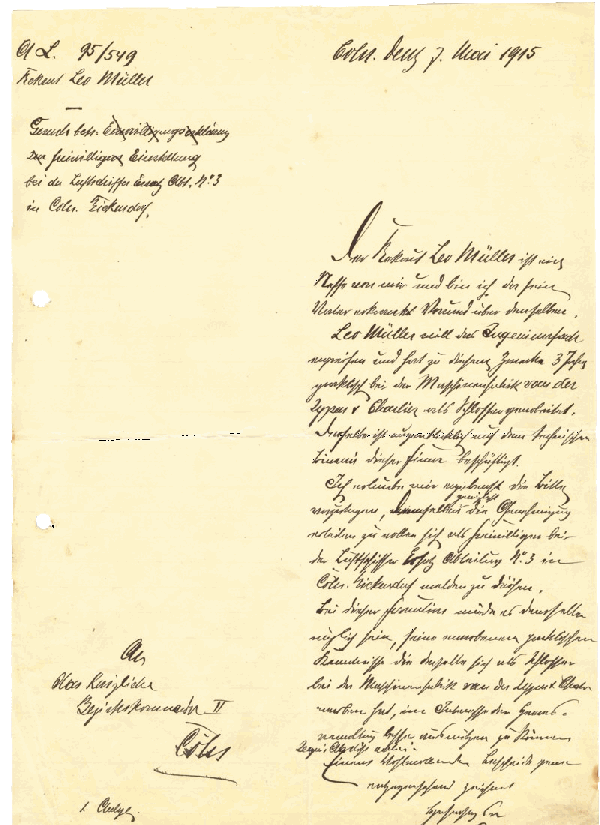 A L. 95/549
Cöln. Deutz 7. Mai 1915
Rekrut Leo Müller
Gesuch betr. Einwilligungserklärung
zur freiwilligen Einstellung
bei der Luftschiffer Ersatz Abt. No 3
in Cöln. Bickendorf.
Der Rekrut Leo Müller ist ein
Neffe von mir und bin ich der
Vormund über denselben.
Leo Müller will das Ingenieurfach
ergreifen und hat zu diesem Zwecke 3 Jahre
praktisch bei der Maschinenfabrik van der
Zypen & Charlier als Schlosser gearbeitet.
Derselbe ist augenblicklich auf dem technischen
Büreau dieser Firma beschäftigt.
Ich erlaube mir ergebenst die Bitte
vorzutragen, demselben die Genehmigung
gütigst
erteilen zu wollen sich als Freiwilliger bei
der Luftschiffer Ersatz Abteilung No 3 in
Cöln. Bickendorf melden zu dürfen.
Bei dieser Formation würde es demselben
möglich sein, seine erworbenen praktischen
Kenntnisse die derselbe sich als Schlosser
bei der Maschinenfabrik van der Zypen & Charlier
erworben hat, im Interesse des Heeres
besser ausnützen zu können
Einem wohlwollenden Bescheide gerne
entgegensehend zeichnet
An
Das Königliche
Bezirkskommando II
Cöln
1 Anlage.